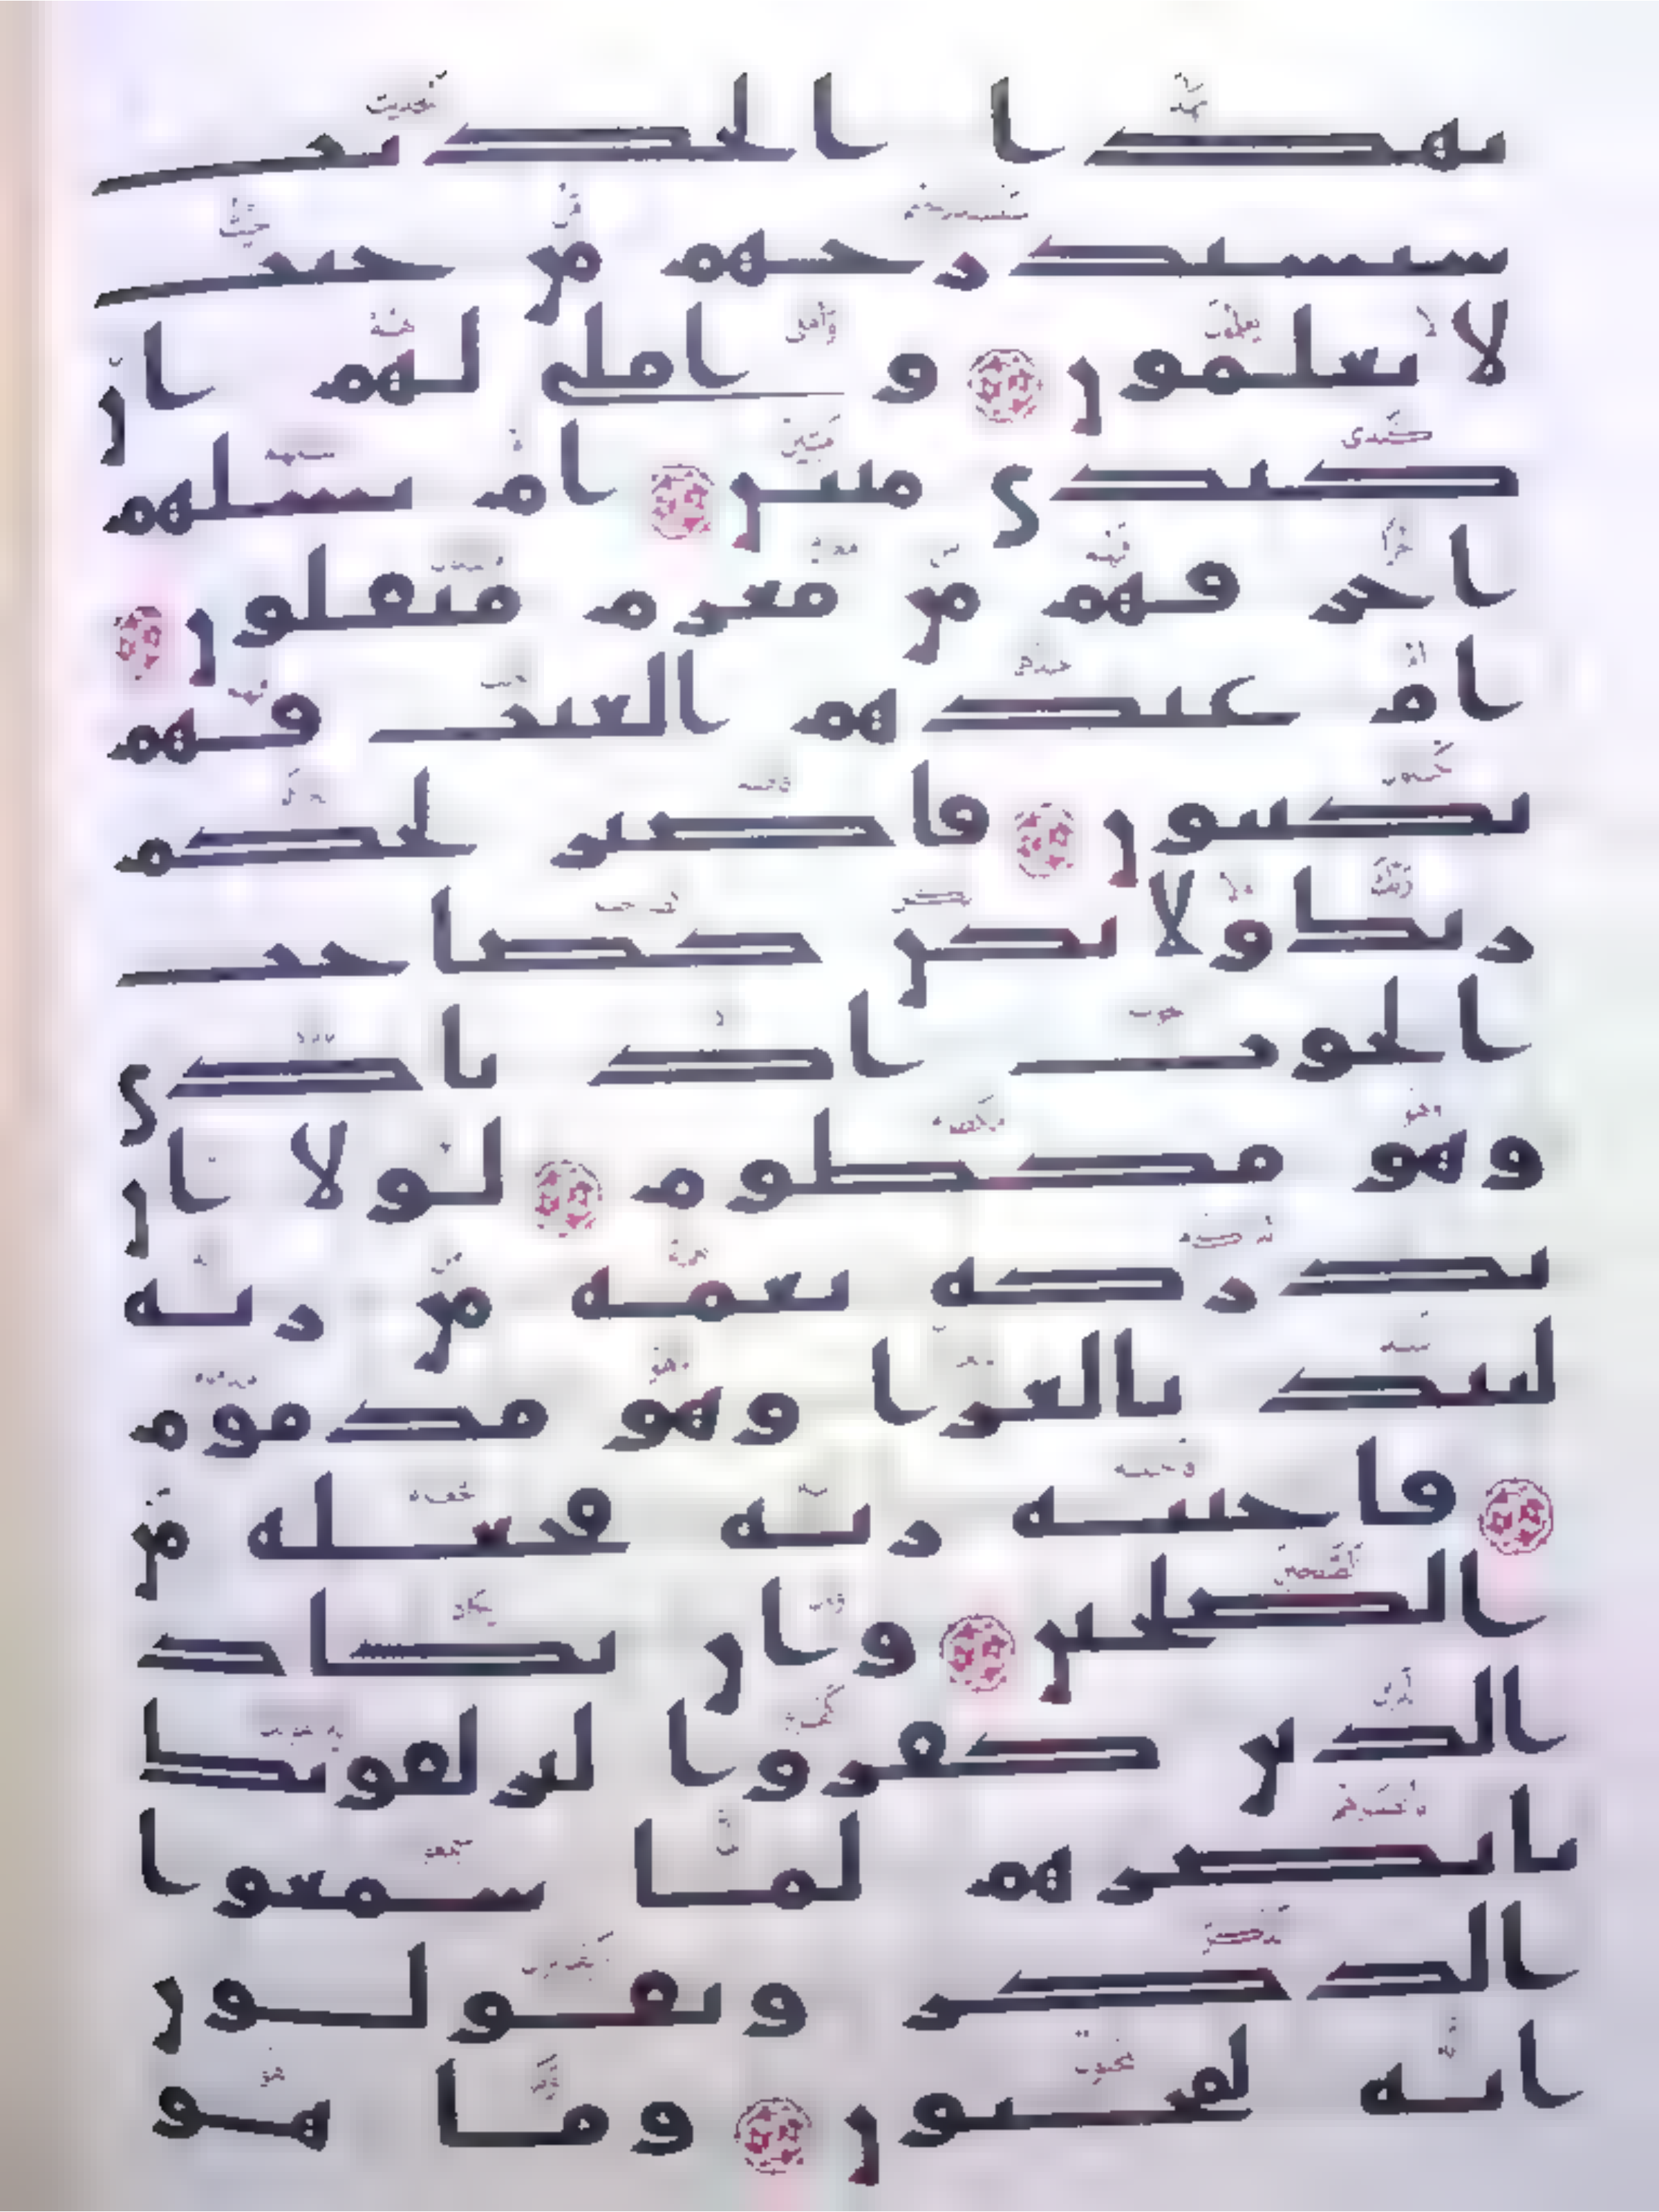 بهذا الحديث
سنستدرجهم من حيث
لا يعلمون و املي لهم ان
كيدي متين ام تسلهم
اجرا فهم من مغرم مثقلون
ام عندهم الغيب فهم
يكتبون فاصبر لحكم
ربك ولا تكن كصاحب
الحوت اذ نادى
وهو مكظوم لولا ان
تدركه نعمة من ربه
لنبذ بالعرا وهو مذموم
فاجتبه ربه فجعله من
الصلحين وان يكاد
الذين كفروا ليزلقونك
بابصرهم لما سمعوا
الذكر ويقولون
انه لمجنون وما هو